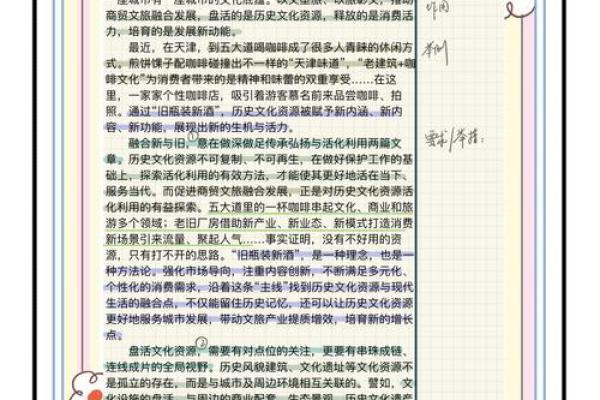 座城市有一座城市的文化底蕴。以文塑旅、以旅彰文，推动
商贸文旅融合发展，盘活的是历史文化资源，释放的是消费活
力，培育的是发展新动能。
最近，在天津，到五大道喝咖啡成了很多人青睐的休闲方
式。煎饼馃子配咖啡碰撞出不一样的“天津味道”，“老建筑+咖
啡文化”为消费者带来的是精神和味蕾的双重享受……在这
里，一家家个性咖啡店，吸引着游客慕名前来品尝咖啡、拍
照。通过“旧瓶装新酒”，历史文化资源被赋予新内涵、新内
容、新功能，展现出新的生机与活力。
①
融合新与旧，意在做深做足传承弘扬与活化利用两篇文
章。历史文化资源不可复制、不可再生，在做好保护工作的基
础上，探索活化利用的有效方法，才能使其更好地活在当下、
服务当代。而促进商贸文旅融合发展，正是对历史文化资源活
化利用的有益探索。五大道里的一杯咖啡串起文化、商业和旅
游多个领域；老旧厂房借助新产业、新业态、新模式打造消费
新场景引来流量、聚起人气……事实证明，没有不好用的资
源，只有打不开的思路。“旧瓶装新酒”，是一种理念，也是一
种方法论。强化市场导向，注重内容创新，不断满足多元化、
个性化的消费需求，沿着这条“主线”找到历史文化资源与现代
生活的融合点，不仅能留住历史记忆，还可以让历史文化资源
更好地服务城市发展，带动文旅产业提质增效，培育新的增长
点。
②
盘活文化资源，需要有对点位的关注，更要有串珠成链、
连线成片的全局视野。历史风貌建筑、文化遗址等文化资源不
是孤立的存在，而是与城市及周边环境相互关联的。譬如，文
化设施的盘活，与周边的商业配套、生态景观、历史文化遗产
作用
举例
要求/举措：